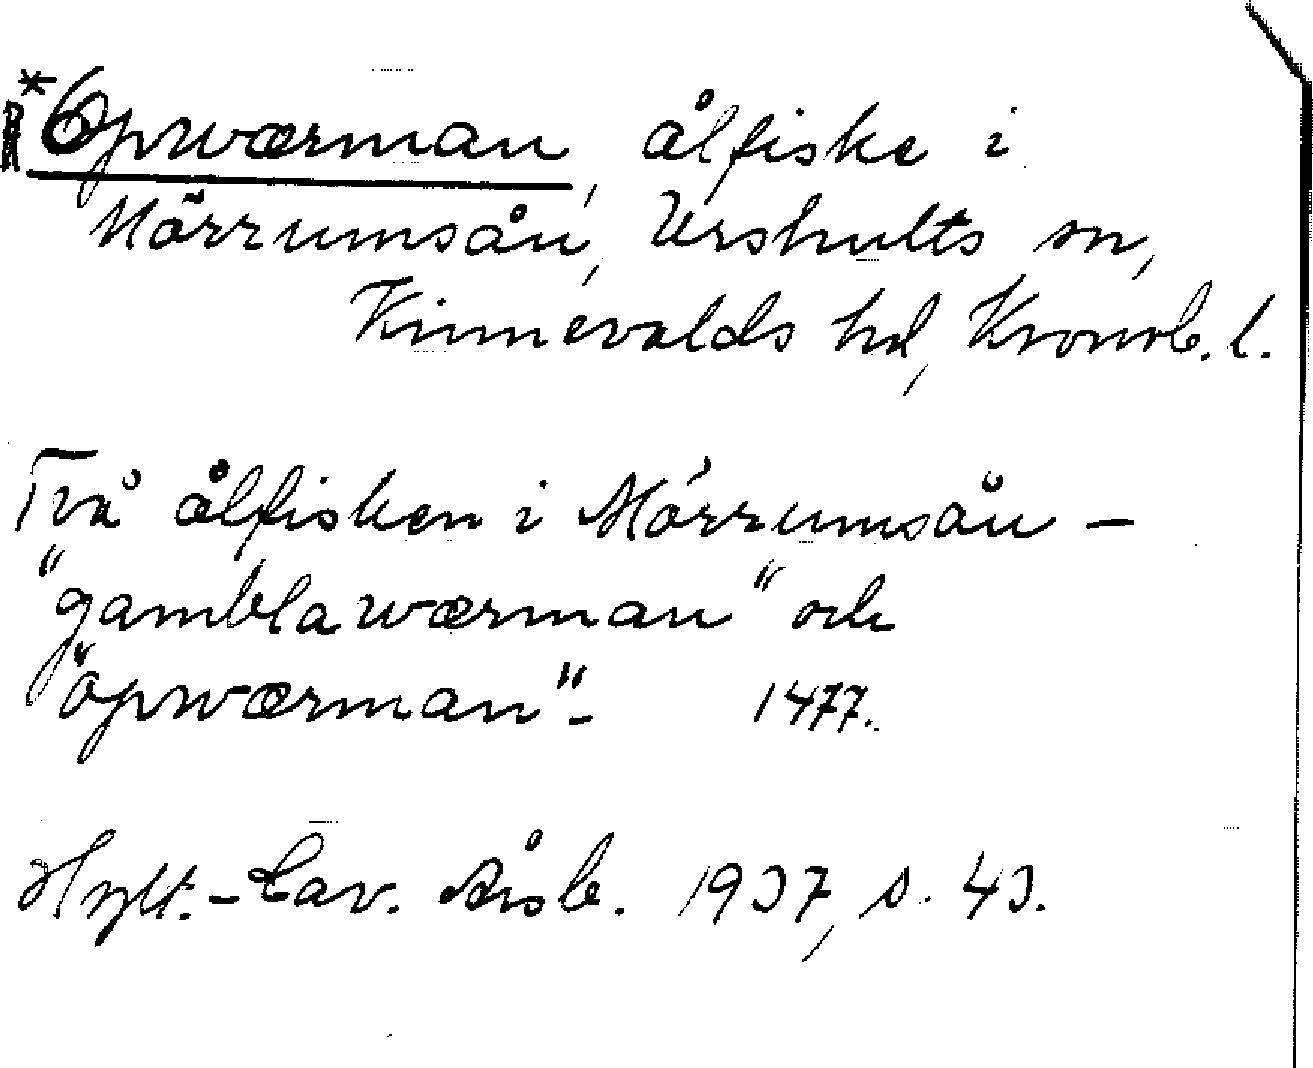 *Opwærman, ålfiske i
Mörrumsån, Urshults sn,
Kinnevalds hd, Kronob. l.
Två ålfisken i Mörrumsån –
"gambla wærman" och
"öpwærman" – 1477.
Hylt.-Cav. Årsb. 1937, s. 43.